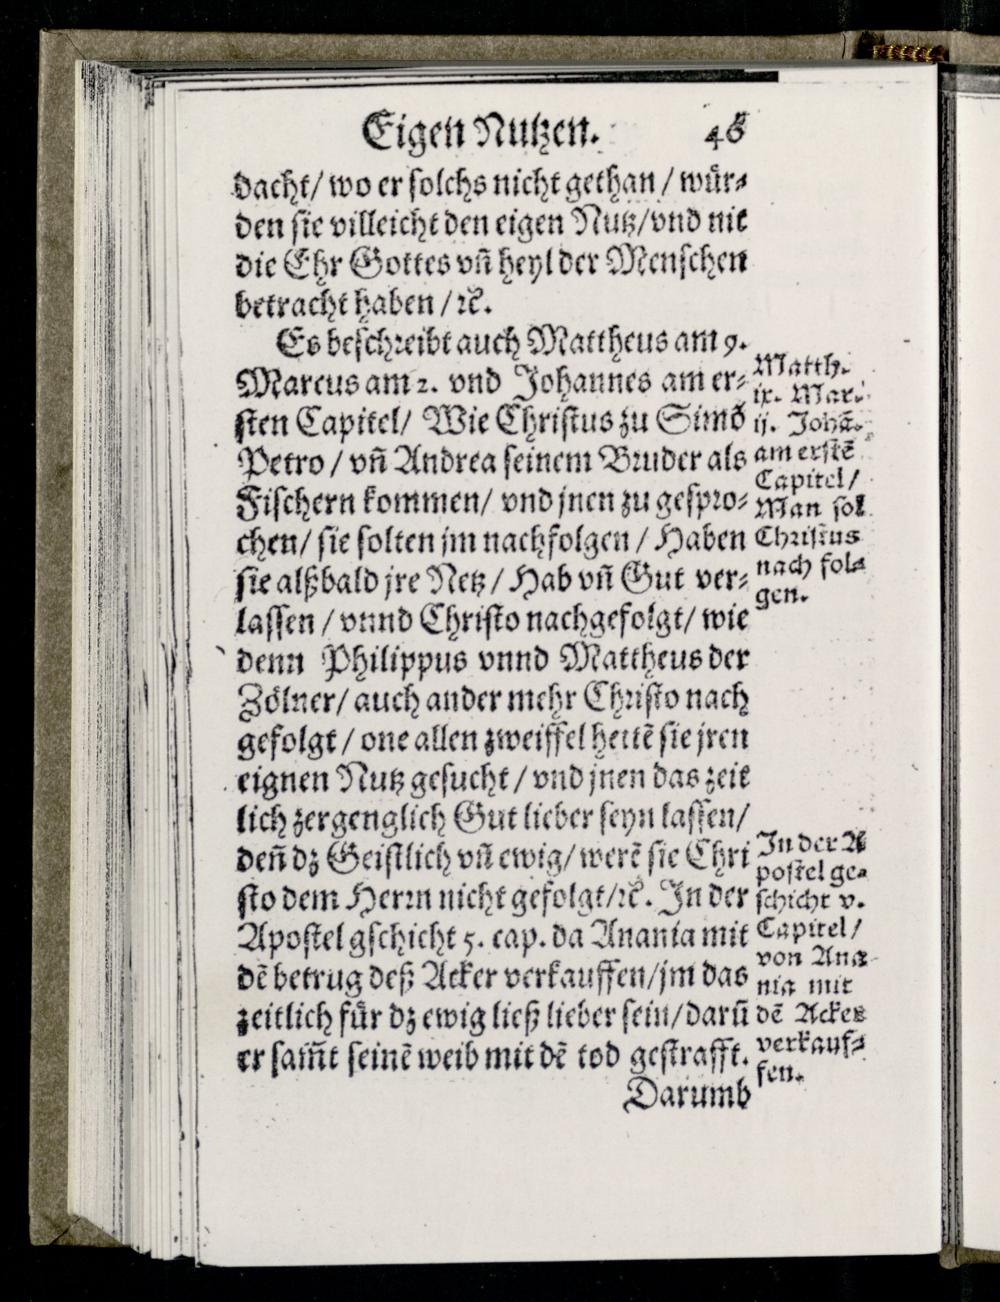 Eigen Nutzen. 46
dacht/ wo er solchs nicht gethan / wür⸗
den sie villeicht den eigen Nutz/vnd nit
die Ehr Gottes vñ heyl der Menschen
betracht haben / ꝛc̃.
Es beschreibt auch Mattheus am 9.
Marcus am 2. vnd Johannes am er⸗
sten Capitel/ Wie Christus zu Simõ
Petro / vñ Andrea seinem Bruder als
Fischern kommen/ vnd jnen zu gespro⸗
chen/ sie solten jm nachfolgen / Haben
sie alßbald jre Netz / Hab vñ Gut ver⸗
lassen / vnnd Christo nachgefolgt/ wie
denn Philippus vnnd Mattheus der
Zölner/ auch ander mehr Christo nach
gefolgt / one allen zweiffel hettẽ sie jren
eignen Nutz gesucht / vnd jnen das zeit
lich zergenglich Gut lieber seyn lassen/
deñ dz Geistlich vñ ewig/ werẽ sie Chri
sto dem Herrn nicht gefolgt/ꝛc̃. In der
Apostel gschicht 5. cap. da Anania mit
dẽ betrug deß Acker verkauffen/jm das
zeitlich für dz ewig ließ lieber sein/darũ
er sam̃t seinẽ weib mit dẽ tod gestrafft.
Darumb
Matth.
ix. Mar.
ij. Johã.
am erstẽ
Capitel/
Man sol
Christus
nach fol⸗
gen.
In der A
postel ge⸗
schicht v.
Capitel/
von Ana
nia mit
dẽ Acker
verkauf⸗
fen.